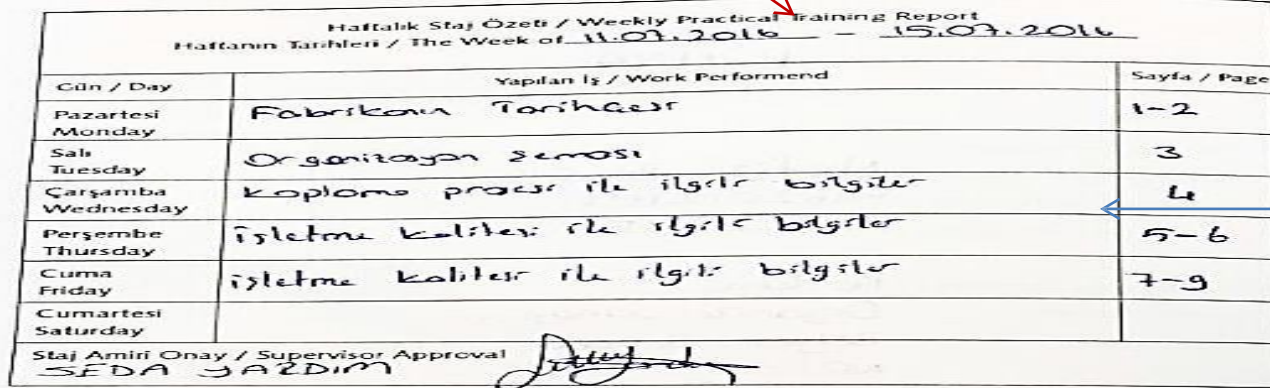 Haftalık Staj Özeti / Weekly Practical Training Report
Haftanın Tarihleri / The Week of 11.07.2016 – 15.07.2016
Gün / Day Yapılan İş / Work Performend Sayfa / Page
Pazartesi Fabrikanın Tarihçesi 1-2
Monday
Salı Organizasyon şeması 3
Tuesday
Çarşamba Kaplama prosesi ile ilgili bilgiler 4
Wednesday
Perşembe işletme kalitesi ile ilgili bilgiler 5-6
Thursday
Cuma işletme kalitesi ile ilgili bilgiler 7-9
Friday
Cumartesi
Saturday
Staj Amiri Onay / Supervisor Approval
SEDA YAZDIM